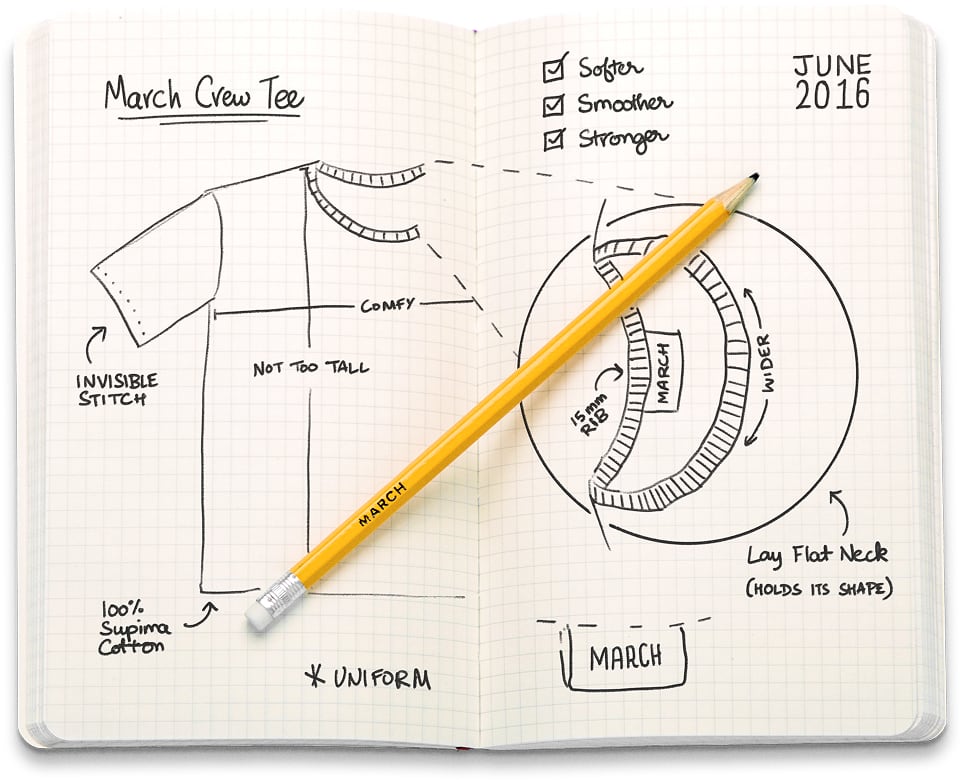 March Crew Tee
COMFY
NOT TOO TALL
INVISIBLE
STITCH
MARCH
100%
Supima
Cotton
* UNIFORM
Softer
Smoother
Stronger
JUNE
2016
15mm
RIB
MARCH
WIDER
Lay Flat Neck
(HOLDS ITS SHAPE)
MARCH